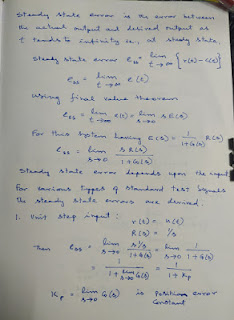 Steady state error is the error between
the actual output and desired output as
t tends to infinity ie, at steady state
Steady state error e_ss = lim_{t→∞} [r(t) - c(t)]
e_ss = lim_{t→∞} e(t)
Using final value theorem
e_ss = lim_{t→∞} e(t) = lim_{s→0} s E(s)
For this system having E(s) = 1/(1+G(s)) R(s)
e_ss = lim_{s→0} s R(s)/(1+G(s))
Steady state error depends upon the input
For various types of standard test signals
the steady state errors are derived.
1. Unit step input : r(t) = u(t)
R(s) = 1/s
Then e_ss = lim_{s→0} (s 1/s)/(1+G(s)) = lim_{s→0} 1/(1+G(s))
= 1/(1+ lim_{s→0} G(s)) = 1/(1+Kp)
Kp = lim_{s→0} G(s) is Position error
Constant